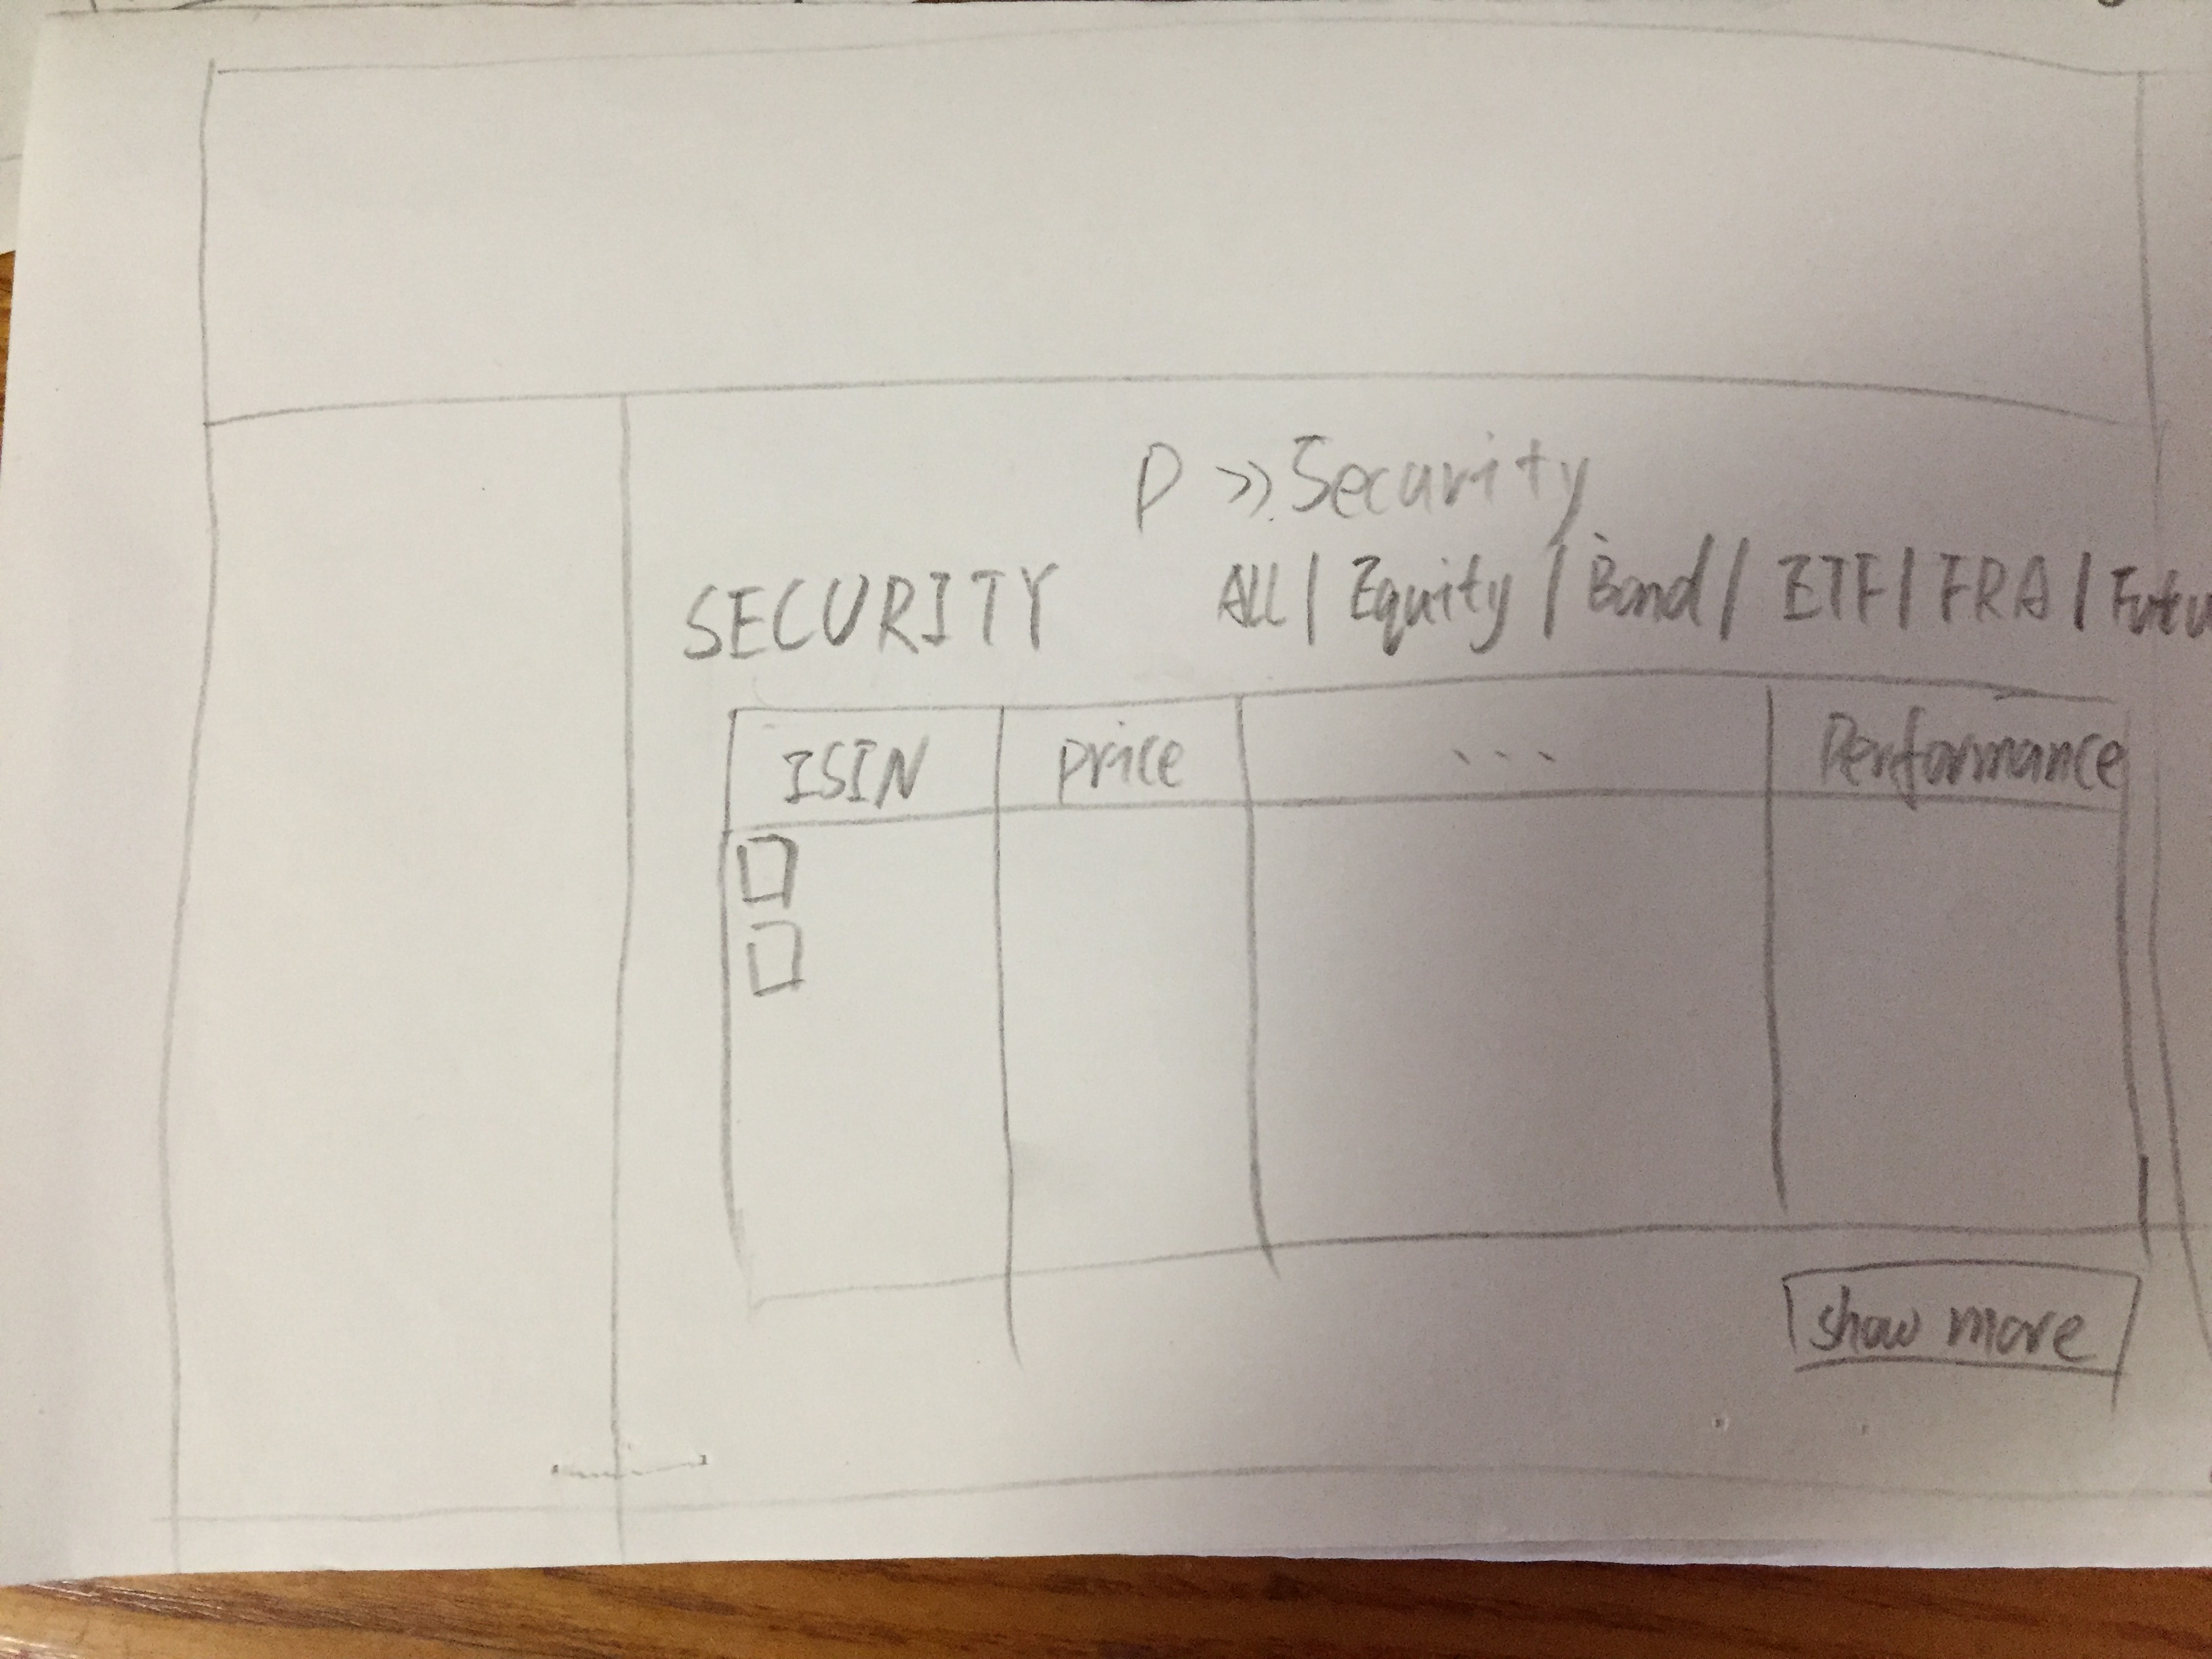 P >> Security
SECURITY ALL / Equity / Bond / ETF / FRA / Futu
ISIN price ... Performance
show more